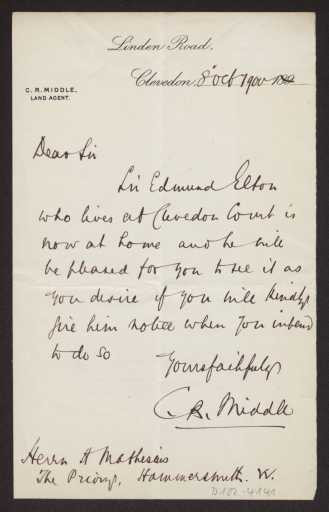 Linden Road,
Clevedon, 8 Oct 1900 189
C. R. MIDDLE,
LAND AGENT.
Dear Sir
Sir Edmund Elton
who lives at Clevedon Court is
now at home and he will
be pleased for you to see it as
you desire if you will kindly
give him notice when you intend
to do so
Yours faithfully
C. R. Middle
Herrn H Mathesius
The Priory, Hammersmith. W.
D102-4141